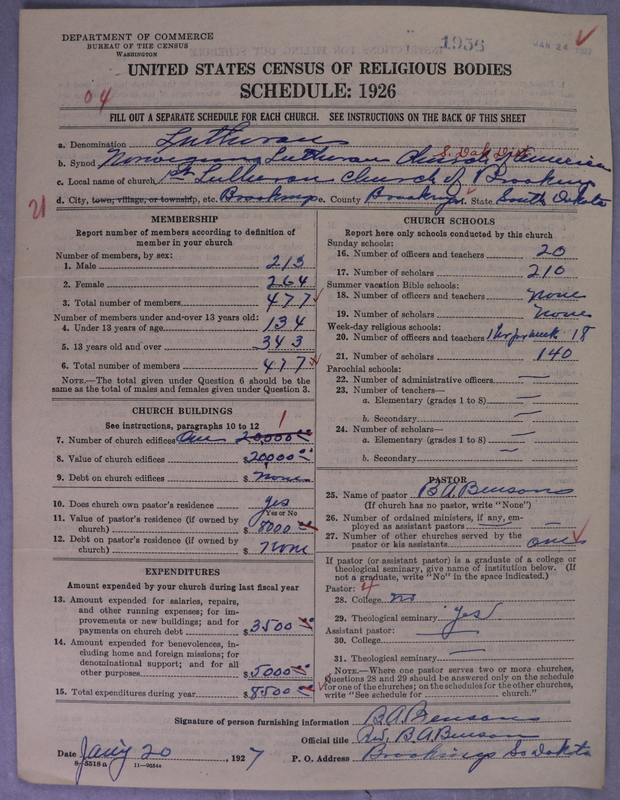 DEPARTMENT OF COMMERCE
BUREAU OF THE CENSUS
WASHINGTON
1956
JAN 24
UNITED STATES CENSUS OF RELIGIOUS BODIES
SCHEDULE: 1926
04
FILL OUT A SEPARATE SCHEDULE FOR EACH CHURCH. SEE INSTRUCTIONS ON THE BACK OF THIS SHEET
a. Denomination Lutheran
S. Dak Dist
b. Synod Norwegian Lutheran Church of America
c. Local name of church 1st Lutheran Church of Brookings
21
d. City, town, village, or township, etc. Brookings e. County Brookings f. State South Dakota
MEMBERSHIP
Report number of members according to definition of
member in your church
Number of members, by sex:
1. Male 213
2. Female 264
3. Total number of members 477
Number of members under and over 13 years old:
4. Under 13 years of age 134
5. 13 years old and over 343
6. Total number of members 477
NOTE.—The total given under Question 6 should be
same as the total of males and females given under Question 3.
CHURCH BUILDINGS
See instructions, paragraphs 10 to 12
1
7. Number of church edifices One 20,000 00
8. Value of church edifices $20000 00
9. Debt on church edifices $ none
10. Does church own pastor's residence yes
Yes or No
11. Value of pastor's residence (if owned by
church) $8000 00
12. Debt on pastor's residence (if owned by
church) $ none
EXPENDITURES
Amount expended by your church during last fiscal year
13. Amount expended for salaries, repairs,
and other running expenses; for im-
provements or new buildings; and for
payments on church debt $3500 00
14. Amount expended for benevolences, in-
cluding home and foreign missions; for
denominational support; and for all
other purposes $5000 00
15. Total expenditures during year $8500 00
CHURCH SCHOOLS
Report here only schools conducted by this church
Sunday schools:
16. Number of officers and teachers 20
17. Number of scholars 210
Summer vacation Bible schools:
18. Number of officers and teachers none
19. Number of scholars none
Week-day religious schools:
20. Number of officers and teachers 1 hr pr week 18
21. Number of scholars 140
Parochial schools:
22. Number of administrative officers —
23. Number of teachers—
a. Elementary (grades 1 to 8) —
b. Secondary —
24. Number of scholars—
a. Elementary (grades 1 to 8) —
b. Secondary —
PASTOR
25. Name of pastor B.A. Benson
(If church has no pastor, write "None")
26. Number of ordained ministers, if any, em-
ployed as assistant pastors —
27. Number of other churches served by the
pastor or his assistants one
If pastor (or assistant pastor) is a graduate of a college or
theological seminary, give name of institution below. (If
not a graduate, write "No" in the space indicated.)
Pastor: 4
28. College no
29. Theological seminary Yes
Assistant pastor: —
30. College
31. Theological seminary —
NOTE.—Where one pastor serves two or more churches,
Questions 28 and 29 should be answered only on the schedule
for one of the churches; on the schedules for the other churches,
write "See schedule for church."
Signature of person furnishing information B.A. Benson
Official title Rev. B.A. Benson
Date Jan'y 20, 1927 P. O. Address Brookings So Dakota
8-5518 a 11-9654